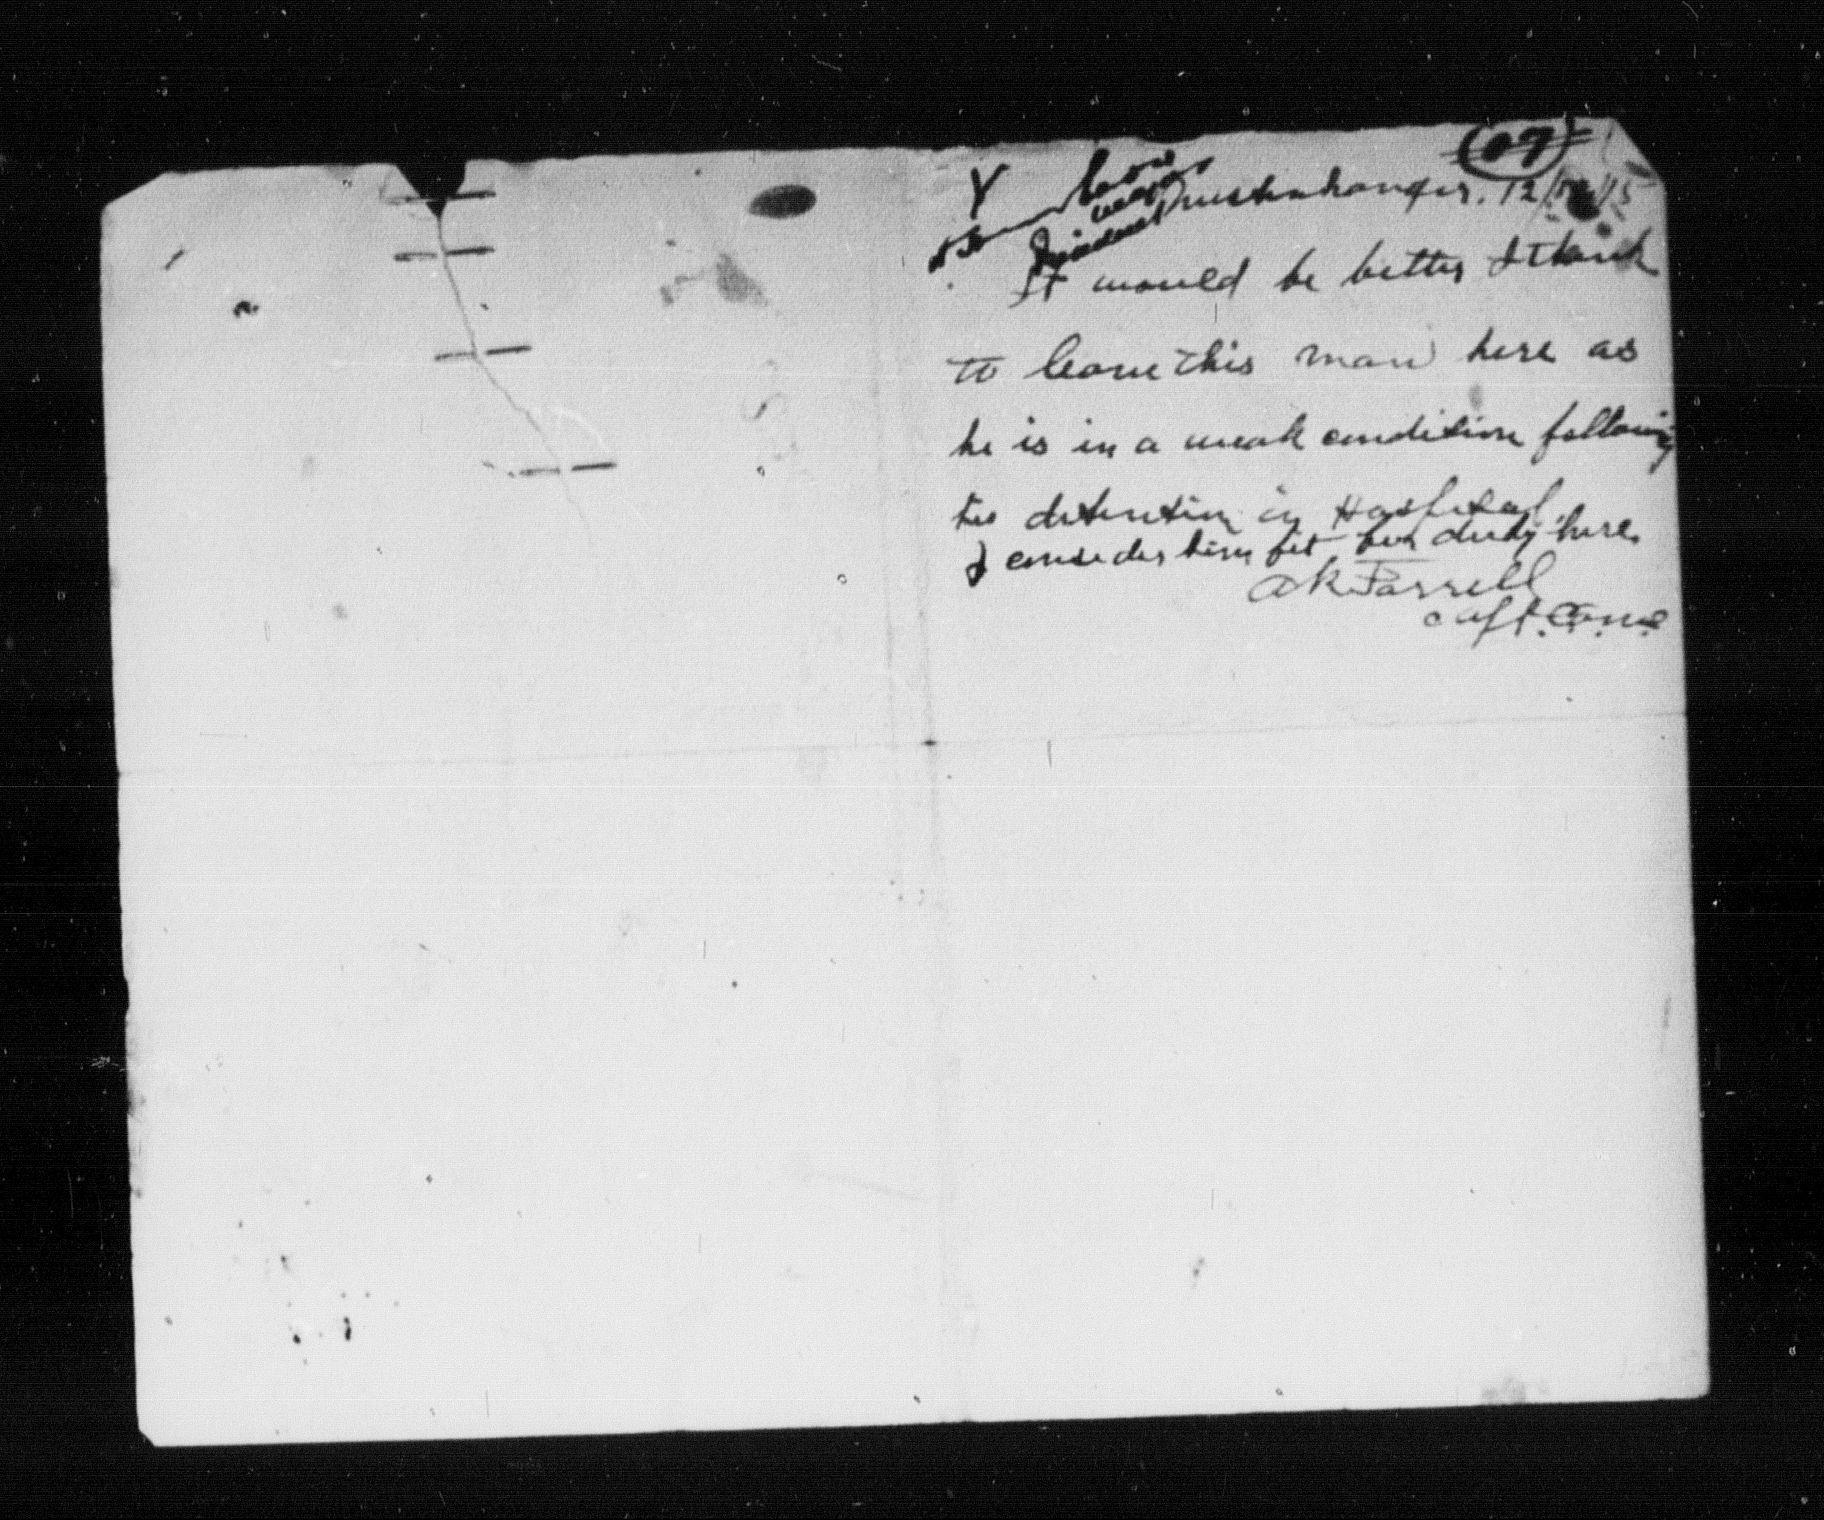 07
Y
Westenhanger. 12/10/15
It would be better I think
to leave this man here as
he is in a weak condition following
his detention in Hospital.
I consider him fit for duty here.
A K Farrell
Capt.